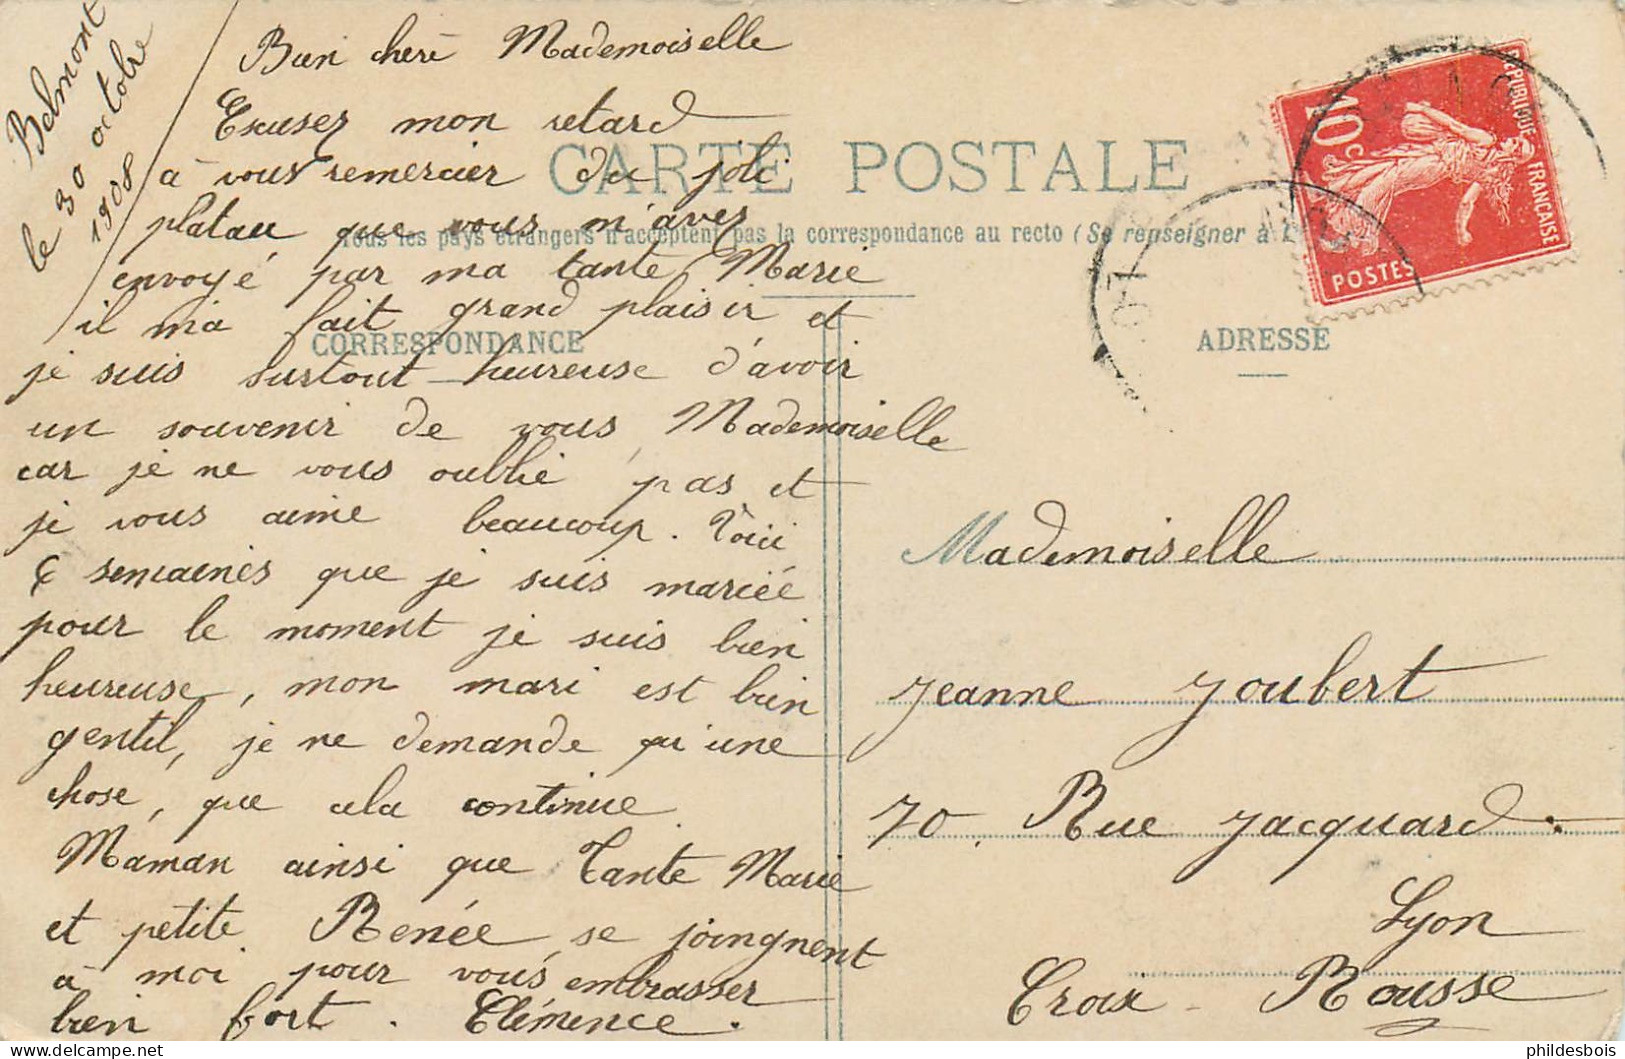 Belmont
le 30 octobre
1908
Bien cherè Mademoiselle
Excusez mon retard
à vous remercier du joli
plateau que vous m'avez
envoyé par ma tante Marie
il ma fait grand plaisir et
je suis surtout heureuse d'avoir
un souvenir de vous Mademoiselle
car je ne vous oublie pas et
je vous aime beaucoup. Voici
6 semainès que je suis mariée
pour le moment je suis bien
heureuse, mon mari est bien
gentil, je ne demande qu'une
chose, que cela continue.
Maman ainsi que Tante Marie
et petite Renée se joingnent
à moi pour vous embrasser
bien fort. Clémence.
CARTE POSTALE
Tous les pays étrangers n'acceptent pas la correspondance au recto (Se renseigner à l
CORRESPONDANCE
ADRESSE
RÉPUBLIQUE FRANÇAISE
10c
POSTES
Mademoiselle
Jeanne Joubert
70. Rue Jacquard.
Lyon
Croix-Rousse
phildesbois